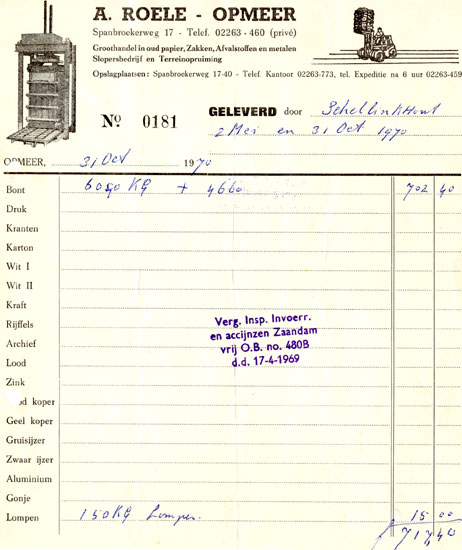 A. ROELE - OPMEER
Spanbroekerweg 17 - Telef. 02263 - 460 (privé)
Groothandel in oud papier, Zakken, Afvalstoffen en metalen
Slopersbedrijf en Terreinopruiming
Opslagplaatsen: Spanbroekerweg 17-40 - Telef. Kantoor 02263-773, tel. Expeditie na 6 uur 02263-459
No 0181
GELEVERD door Schellinkhout
2 Mei en 31 Oct 1970
OPMEER, 31 Oct 1970
Bont KG + 4660 702 40
Druk
Kranten
Karton
Wit I
Wit II
Kraft
Rijffels
Archief
Lood
Zink
koper
Geel koper
Gruisijzer
Zwaar ijzer
Aluminium
Gonje
Lompen 150 KG Lompen. 15 00
717 40
Verg. Insp. Invoerr.
en accijnzen Zaandam
vrij O.B. no. 480B
d.d. 17-4-1969